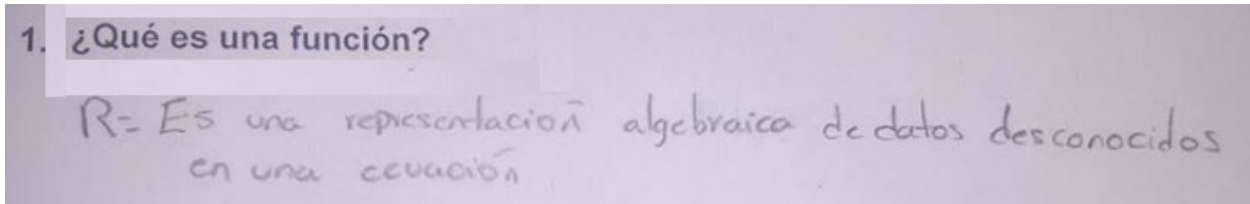 1. ¿Qué es una función?
R= Es una representación algebraica de datos desconocidos
en una ecuación